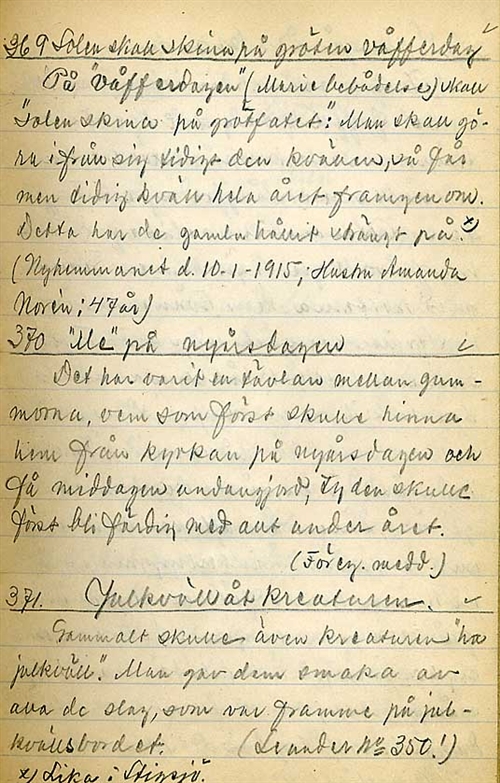 369 Solen skall skina på gröten våfferdag
På "våfferdagen" (Marie bebådelse) skall
"solen skina på grötfatet." Man skall gö-
ra ifrån sig tidigt den kvällen, så får
men tidig kväll hela året framgenom.
Detta har de gamla hållit strängt på. x)
(Nyhemmanet d. 10-1-1915; Hustru Amanda
Norén; 47 år)
370 "Me" på nyårsdagen
Det har varit en tävlan mellan gum-
morna, vem som först skulle hinna
hem från kyrkan på nyårsdagen och
få middagen undangjord, ty den skulle
först bli färdig med allt under året.
(Föreg. medd.)
371. Julkväll åt kreaturen.
Gammalt skulle även kreaturen "ha
julkväll". Man gav dem smaka av
alla de slag, som var framme på jul-
kvällsbordet. (Se under No 350!)
x) Lika i Stigsjö.